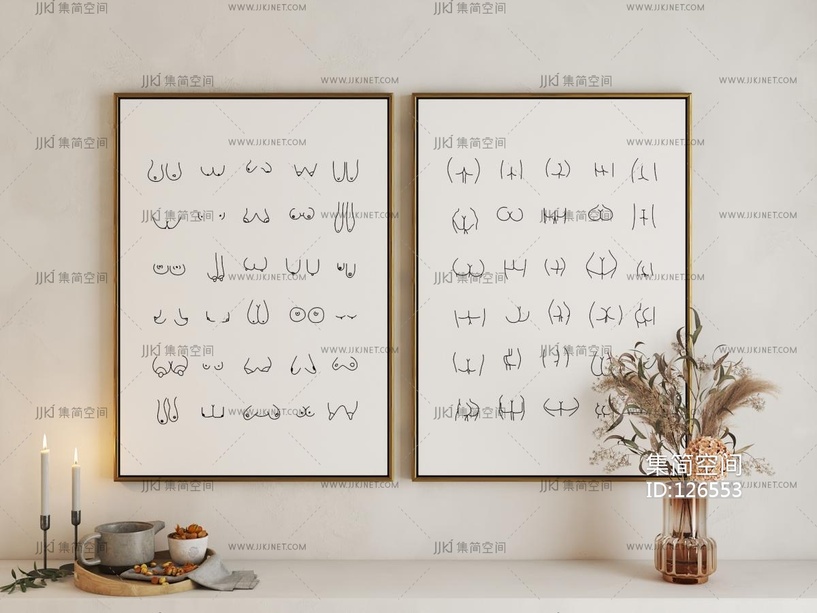 JJKJ 集简空间 WWW.JJKJNET.COM JJKJ 集简空间 WWW.JJKJNET.COM
JJKJ 集简空间 WWW.JJKJNET.COM JJKJ 集简空间 WWW.JJKJNET.COM
JJKJ 集简空间 WWW.JJKJNET.COM JJKJ 集简空间 WWW.JJKJNET.COM
JJKJ 集简空间 WWW.JJKJNET.COM JJKJ 集简空间 WWW.JJKJNET.COM
JJKJ 集简空间 WWW.JJKJNET.COM JJKJ 集简空间 WWW.JJKJNET.COM
JJKJ 集简空间 WWW.JJKJNET.COM JJKJ 集简空间 WWW.JJKJNET.COM
JJKJ 集简空间 WWW.JJKJNET.COM JJKJ 集简空间 WWW.JJKJNET.COM
集简空间
JJKJ 集简空间 WWW.JJKJNET.COM JJKJ 集简空间 WWW.JJKJNET.COM
ID:126553
JJKJ 集简空间 WWW.JJKJNET.COM JJKJ 集简空间 WWW.JJKJNET.COM